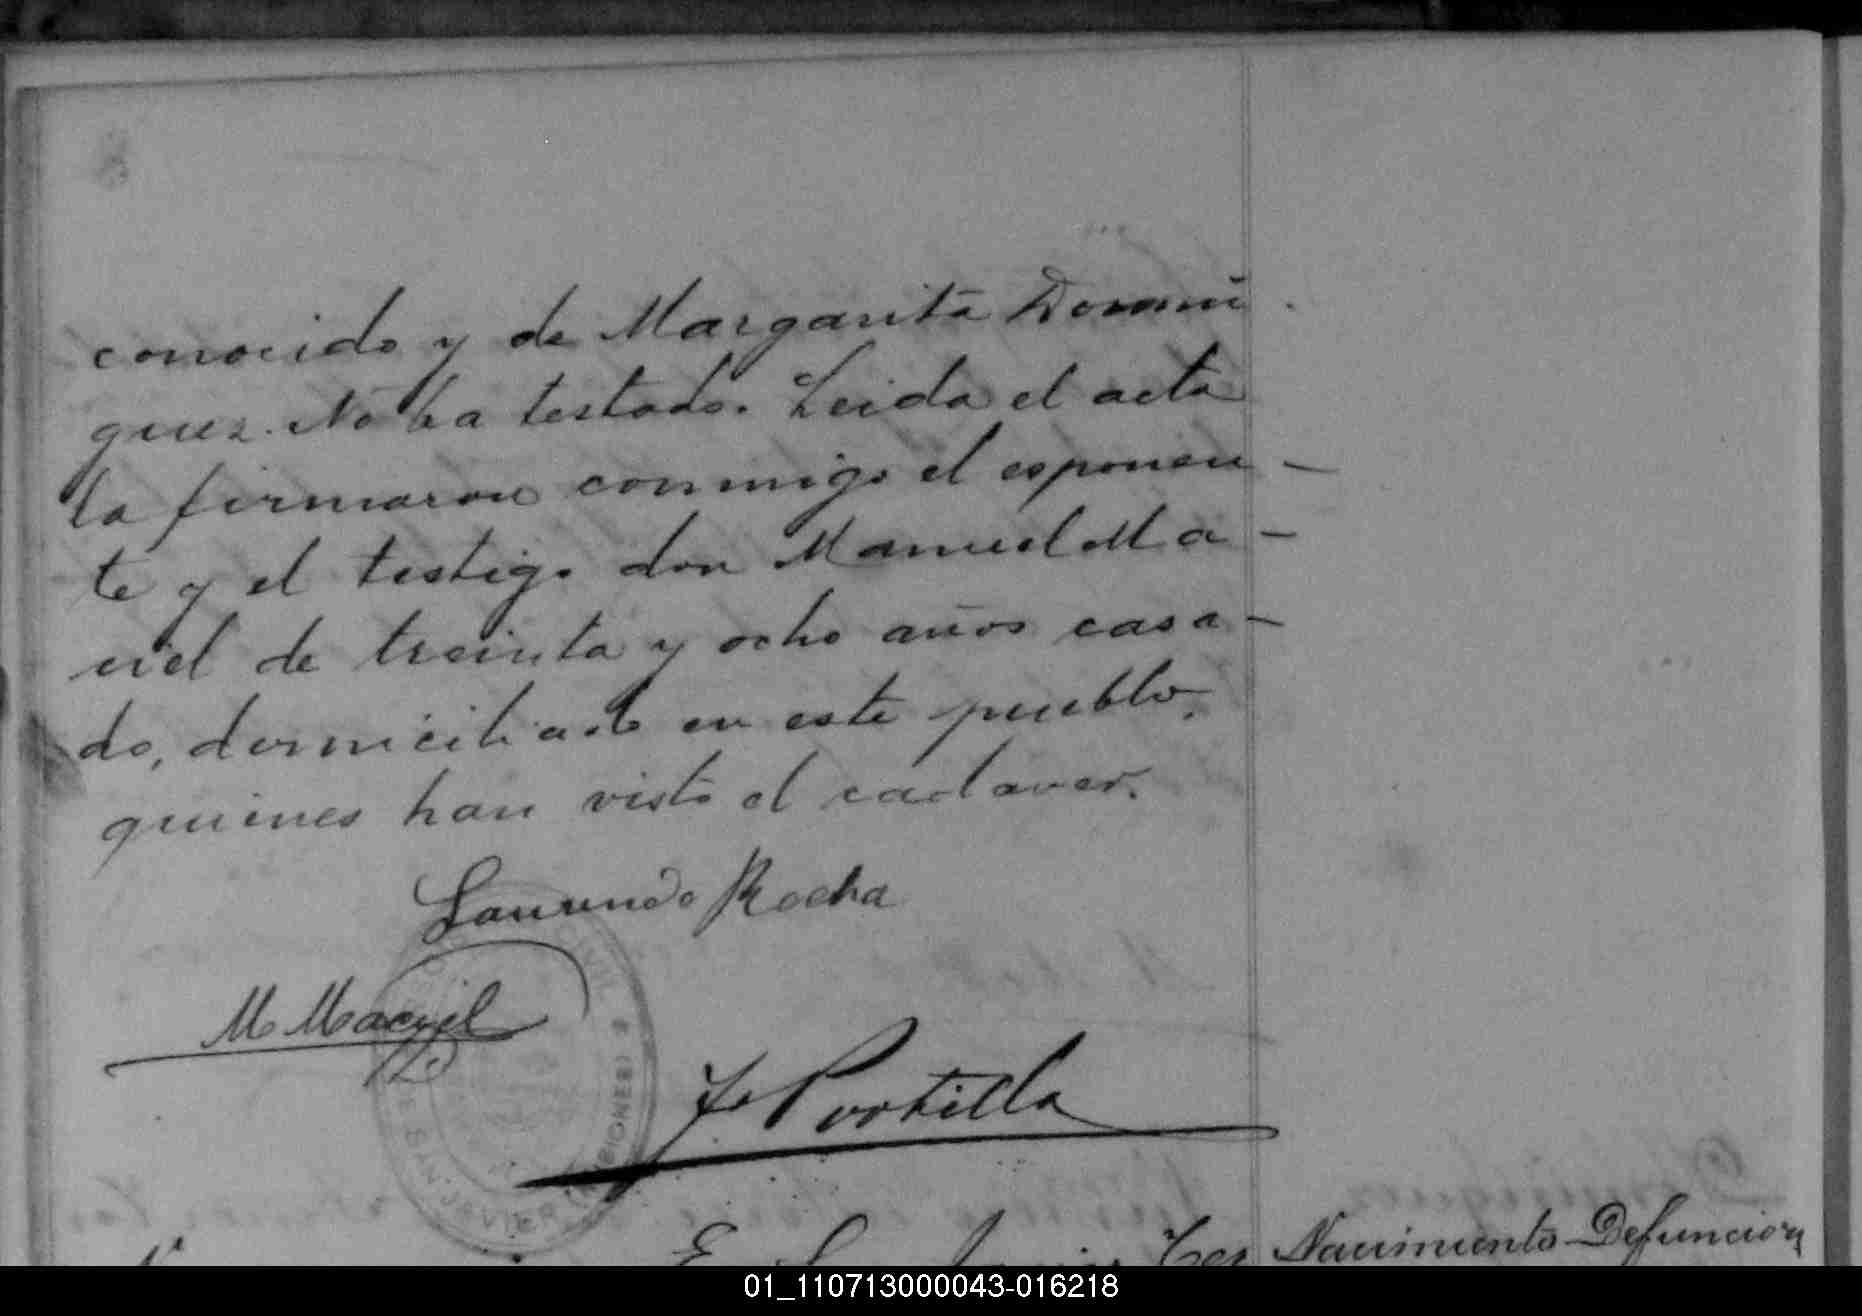 conocido y de Margarita Domin
guez. No ha testado. Leida el acta
la firmaron conmigo el esponen-
te y el testigo don Manuel Ma-
ciel de treinta y ocho años casa-
do, domiciliado en este pueblo,
quienes han visto el cadaver.
Laurindo Rocha
M Maciel
J. Portilla
CIVIL
DE SAN JAVIER (MISIONES)
En San Javier
Nacimiento Defuncion
01_110713000043-016218